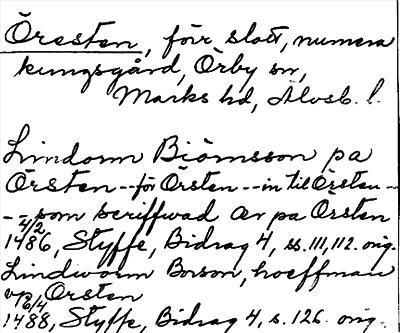 Öresten, förr slott, numera
kungsgård, Örby sn,
Marks hd, Älvsb. l.
Lindorm Biörnsson pa
Örsten -- för Örsten -- in til Örsten --
-- som scriffwad ær pa Örsten
4/2
1486, Styffe, Bidrag 4, ss. 111, 112. orig.
Lindworm Borson, hoeffman
vp Örsten
13/4
1488, Styffe, Bidrag 4, s. 126. orig.